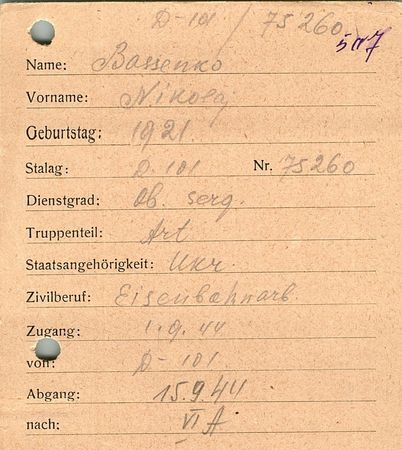 D-101 / 75260
507
Name: Bassenko
Vorname: Nikolaj
Geburtstag: 1921
Stalag: D-101 Nr. 75260
Dienstgrad: Ob. Serg.
Truppenteil: Art
Staatsangehörigkeit: Ukr.
Zivilberuf: Eisenbahnarb.
Zugang: 1.9.44
von: D-101
Abgang: 15.9.44
nach: VI A